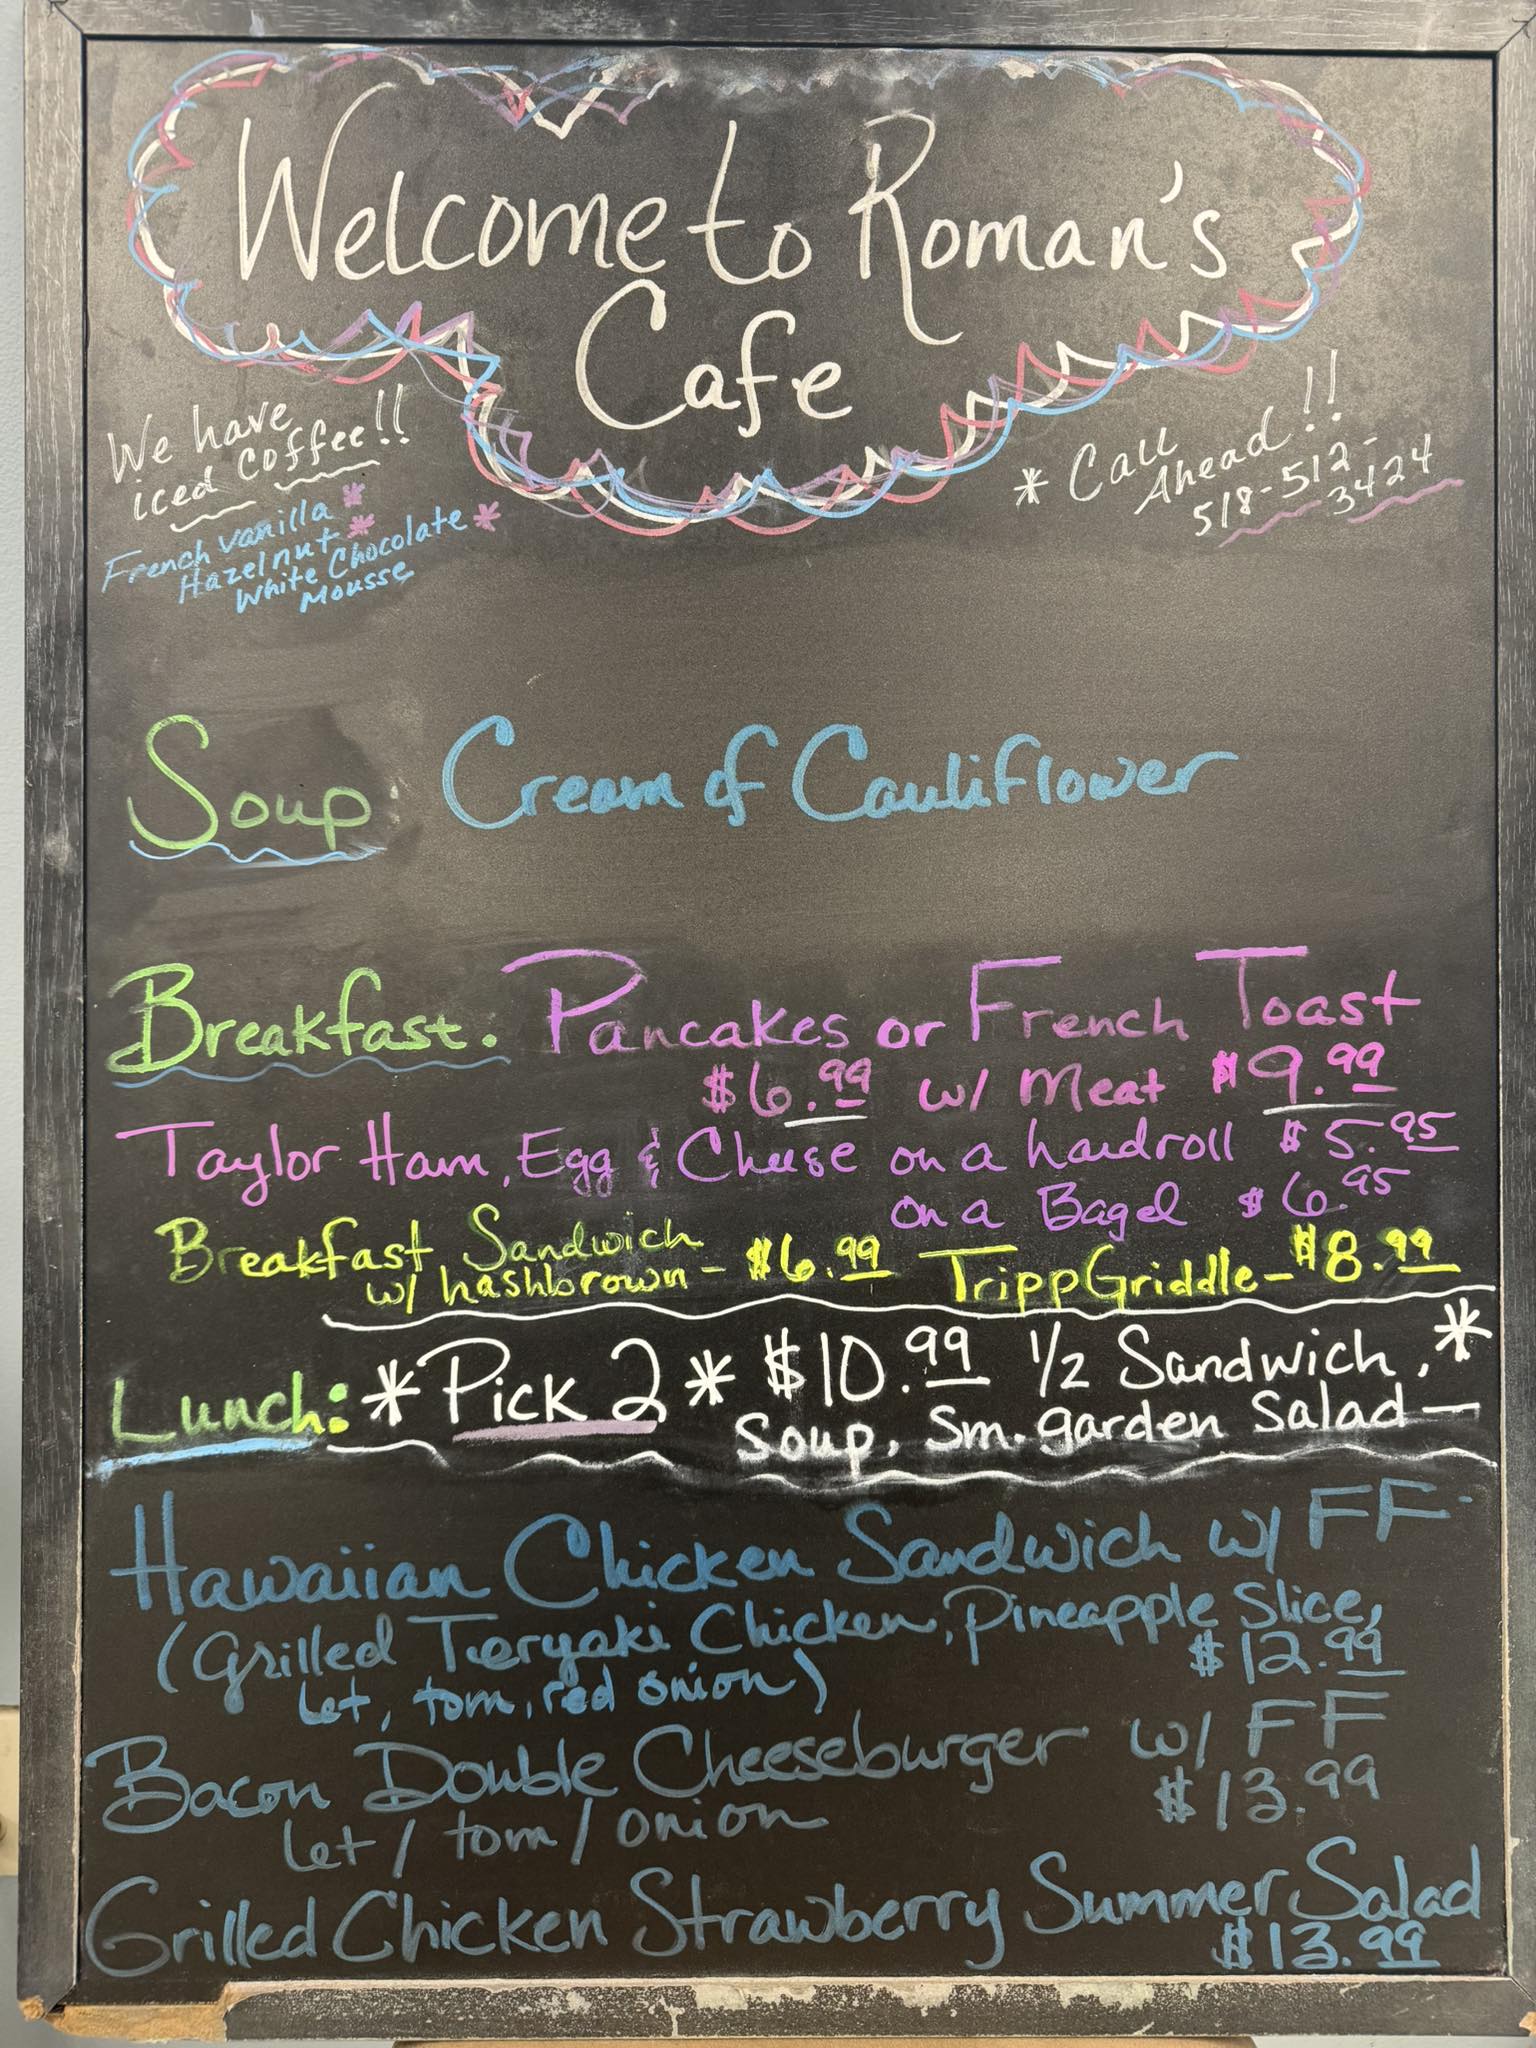 Welcome to Roman's
Cafe
We have
iced coffee!!
French vanilla *
Hazelnut *
White Chocolate *
Mousse
* Call
Ahead!!
518-512-
3424
Soup Cream of Cauliflower
Breakfast. Pancakes or French Toast
$6.99 w/ Meat $9.99
Taylor Ham, Egg & Cheese on a hardroll $5.95
on a Bagel $6.95
Breakfast Sandwich
w/ hashbrown - $6.99 TrippGriddle - $8.99
Lunch: * Pick 2 * $10.99 1/2 Sandwich, *
Soup, Sm. garden Salad —
Hawaiian Chicken Sandwich w/ FF
(Grilled Teryaki Chicken, Pineapple Slice,
let, tom, red onion) $12.99
Bacon Double Cheeseburger w/ FF
let / tom / onion $13.99
Grilled Chicken Strawberry Summer Salad
$13.99